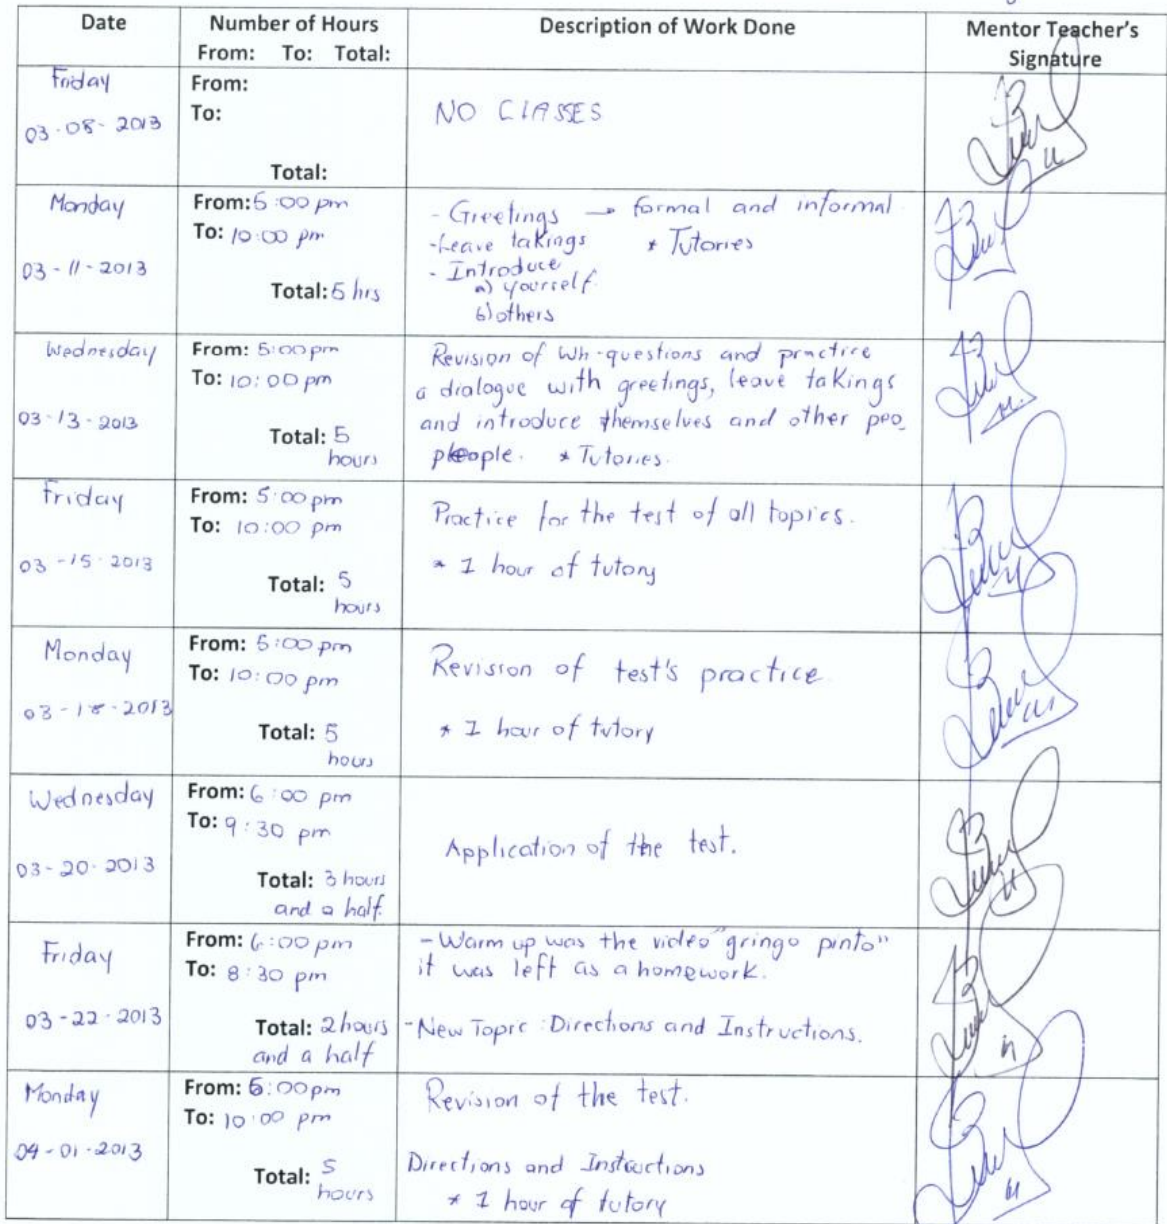 Date
Number of Hours
From: To: Total:
Description of Work Done
Mentor Teacher's
Signature
Friday
03-08-2013
From:
To:
Total:
NO CLASSES
Monday
03-11-2013
From: 5:00 pm
To: 10:00 pm
Total: 5 hrs
- Greetings → formal and informal
- Leave takings * Tutories
- Introduce
a) yourself.
b) others
Wednesday
03-13-2013
From: 5:00 pm
To: 10:00 pm
Total: 5
hours
Revision of Wh-questions and practice
a dialogue with greetings, leave takings
and introduce themselves and other peo_
people. * Tutories.
Friday
03-15-2013
From: 5:00 pm
To: 10:00 pm
Total: 5
hours
Practice for the test of all topics.
* 1 hour of tutory
Monday
03-18-2013
From: 5:00 pm
To: 10:00 pm
Total: 5
hours
Revision of test's practice
* 1 hour of tutory
Wednesday
03-20-2013
From: 6:00 pm
To: 9:30 pm
Total: 3 hours
and a half.
Application of the test.
Friday
03-22-2013
From: 6:00 pm
To: 8:30 pm
Total: 2 hours
and a half
- Warm up was the video "gringo pinto"
it was left as a homework.
- New Topic: Directions and Instructions.
Monday
04-01-2013
From: 5:00 pm
To: 10:00 pm
Total: 5
hours
Revision of the test.
Directions and Instructions
* 1 hour of tutory